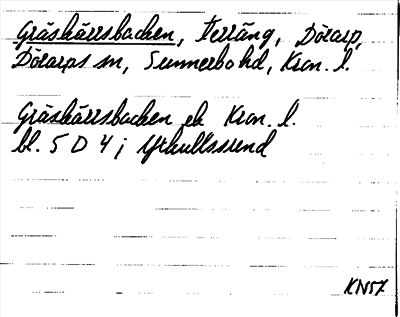 Gräskärrsbacken, Terräng, Dörarp,
Dörarps sn, Sunnerbo hd, Kron. l.
Gräskärrsbacken ek Kron. l.
bl. 5 D 4 j
KN57